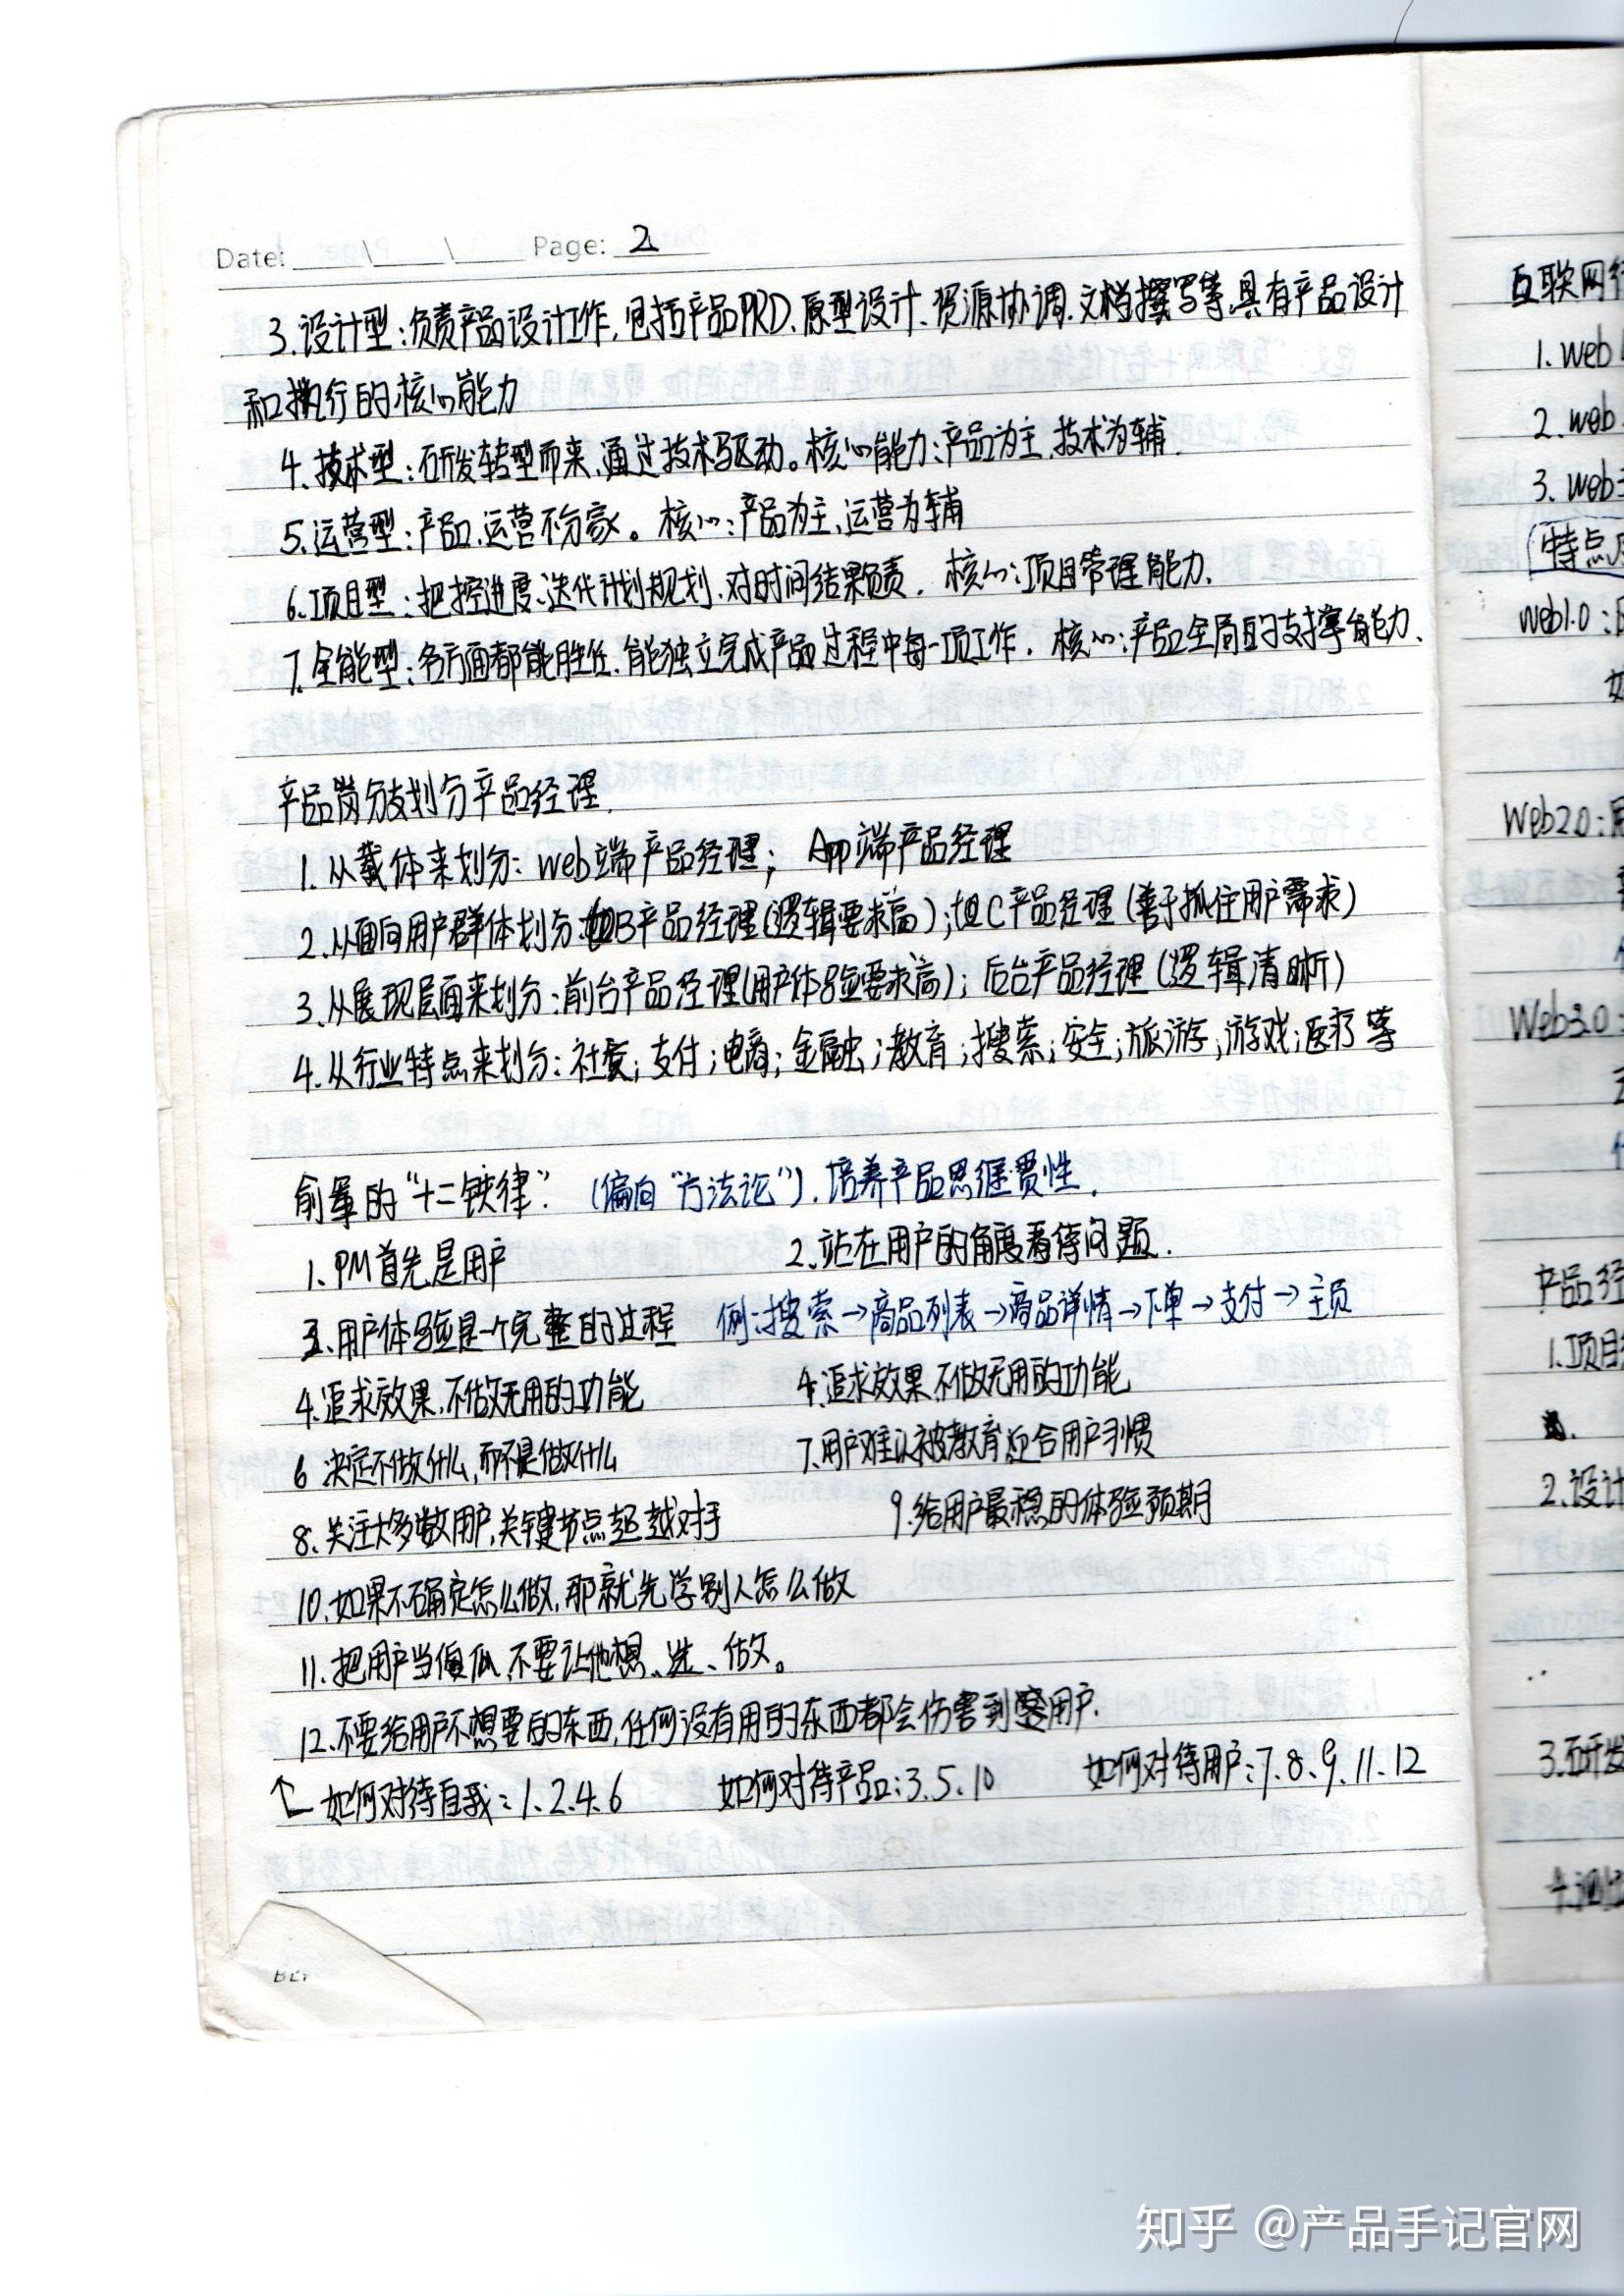 Date: \ \ Page: 2
3.设计型:负责产品设计工作,包括产品PRD、原型设计、资源协调、文档撰写等,具有产品设计
和执行的核心能力
4.技术型:研发转型而来,通过技术驱动。核心能力:产品为主,技术为辅.
5.运营型:产品、运营不分家。核心:产品为主、运营为辅
6.项目型:把控进度、迭代计划规划、对时间结果负责. 核心:项目管理能力.
7.全能型:各方面都能胜任.能独立完成产品过程中每一项工作. 核心:产品全局的支撑能力.
产品岗分支划分产品经理.
1.从载体来划分:web端产品经理; App端产品经理
2.从面向用户群体划分:B产品经理(逻辑要求高);C产品经理(善于抓住用户需求)
3.从展现层面来划分:前台产品经理(用户体验要求高);后台产品经理(逻辑清晰)
4.从行业特点来划分:社交;支付;电商;金融;教育;搜索;安全;旅游;游戏;医疗等
俞军的“十二铁律”. (偏向“方法论”).培养产品思维惯性.
1.PM首先是用户 2.站在用户的角度看待问题.
3.用户体验是一个完整的过程 例:搜索→商品列表→商品详情→下单→支付→主页
4.追求效果,不做无用的功能 4.追求效果,不做无用的功能
6 决定不做什么,而不是做什么 7.用户难以被教育,迎合用户习惯
8.关注大多数用户,关键节点超越对手 9.给用户最稳的体验预期
10.如果不确定怎么做,那就先学别人怎么做
11.把用户当傻瓜,不要让他想、选、做。
12.不要给用户不想要的东西,任何没有用的东西都会伤害到用户.
如何对待自我:1.2.4.6 如何对待产品:3.5.10 如何对待用户:7.8.9.11.12
互联网行
1.web
2.web
3.web
特点
web1.0:
如
Web2.0:
Web3.0:
产品经
1.项目
2.设计
3.研发
4.测试
知乎 @产品手记官网